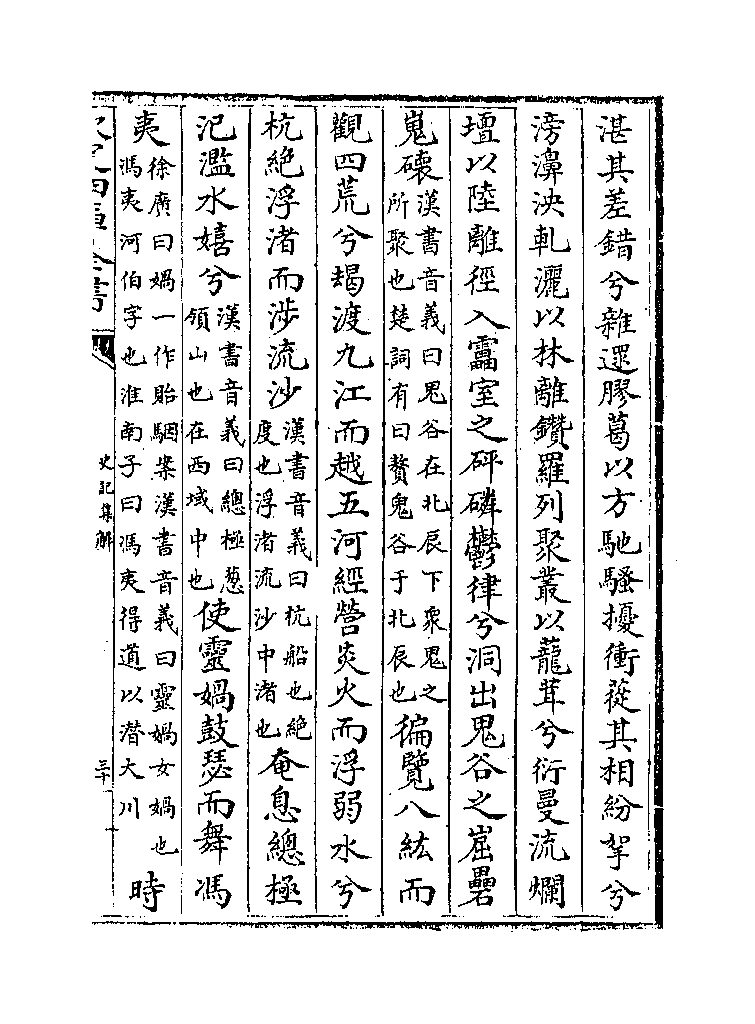 湛其差錯兮雜遝膠葛以方馳騷擾衝蓯其相紛挐兮
滂濞泱軋灑以林離鑽羅列聚叢以蘢茸兮衍曼流爛
壇以陸離徑入靁室之砰磷鬱律兮洞出鬼谷之崫礨
嵬䃶漢書音義曰鬼谷在北辰下衆鬼之所聚也楚詞有曰贅鬼谷于北辰也徧覽八紘而
觀四荒兮朅渡九江而越五河經營炎火而浮弱水兮
杭絶浮渚而涉流沙漢書音義曰杭船也絶度也浮渚流沙中渚也奄息總極
氾濫水嬉兮漢書音義曰總極葱領山也在西域中也使靈媧鼓瑟而舞馮
夷徐廣曰媧一作貽駰案漢書音義曰靈媧女媧也馮夷河伯字也淮南子曰馮夷得道以潛大川時
欽定四庫全書
史記集解
三十